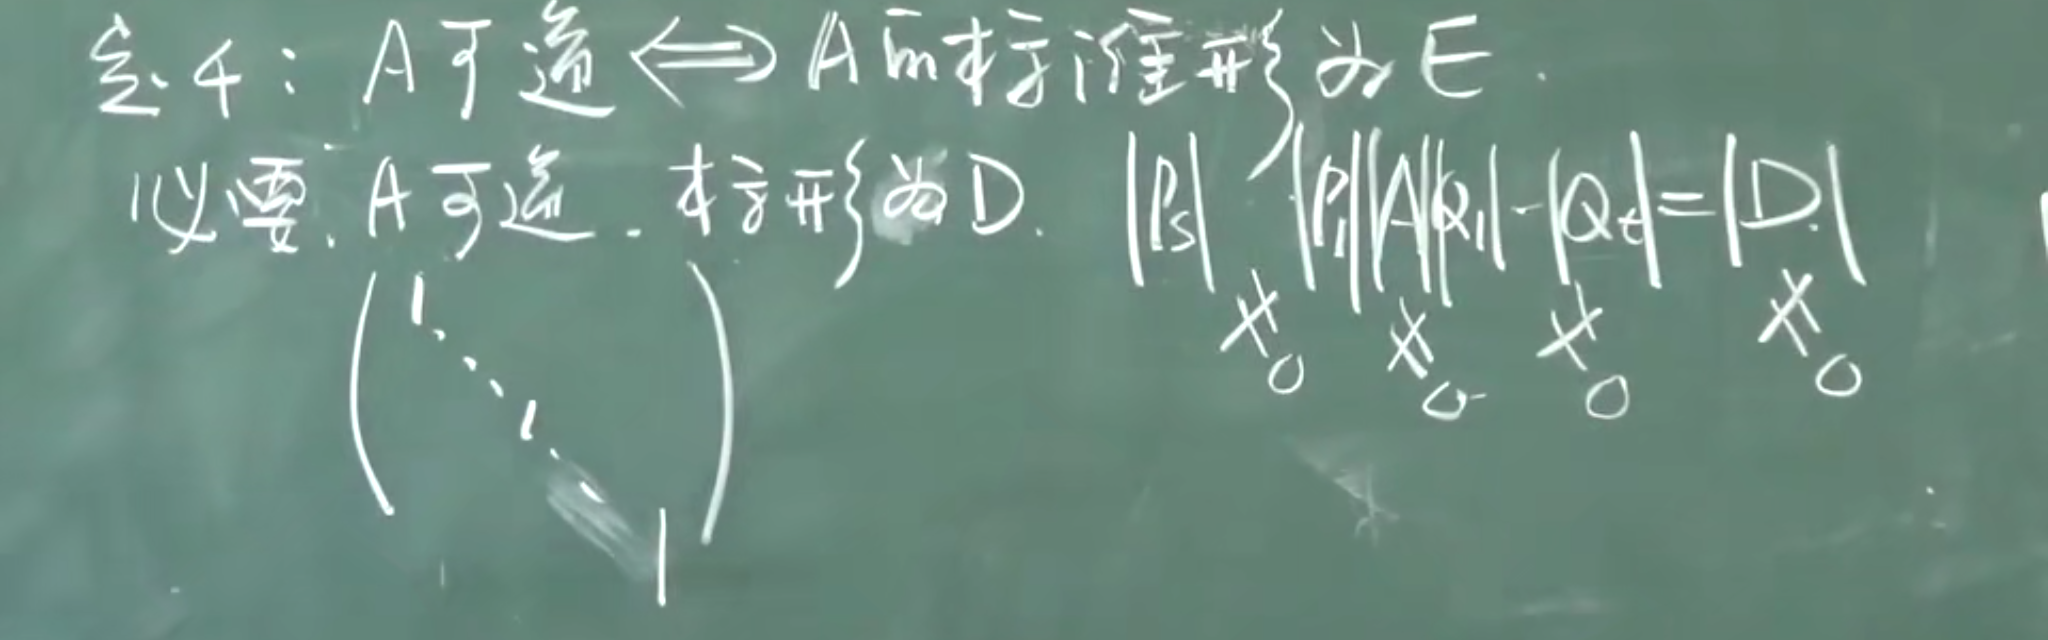 定4: A可逆 ⟺ A的标准形为E.
必要. A可逆. 标形为D. |Ps| |P1||A||Q1|-|Qt|=|D|
≠0 ≠0 ≠0 ≠0
1
1
1